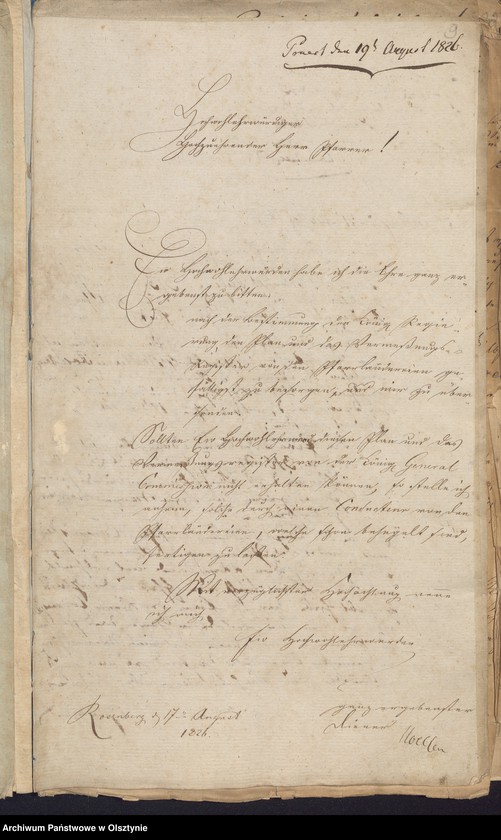 9
den 19t August 1826.
Hochwohlehrwürdiger
Hochzuehrender Herr Pfarrer!
Ew Hochwohlehrwürden habe ich die Ehre ganz er-
gebenst zu bitten:
nach der Bestimmung der Königl Regie-
rung den Plan und das Vermessungs-
Register von den Pfarrländereien ge-
fälligst zu besorgen, und mir zu über-
senden.
Sollten Ew Hochwohlehrwürd diesen Plan und das
Vermessungsregister von der Königl General
Commission nicht erhalten können, so stelle ich
anheim, solche durch einen Conducteur von den
Pfarrländereien, welche schon besaet sind,
fertigen zu lassen.
Mit vorzüglichster Hochachtung nenne
ich mich
Ew Hochwohlehrwürden
ganz ergebenster
Diener
d 17t August
1826
Archiwum Państwowe w Olsztynie